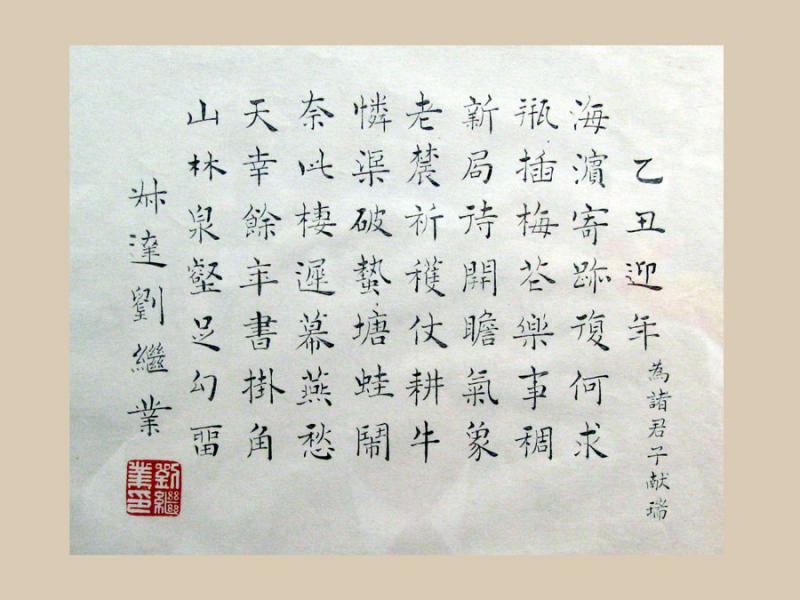 乙丑迎年 為諸君子献瑞
海濱寄跡復何求
瓶插梅花樂事稠
新局待開瞻氣象
老農祈穫仗耕牛
憐渠破蟄塘蛙鬧
奈此棲遲幕燕愁
天幸餘年書掛角
山林泉壑足幻畱
叔達劉繼業
劉繼業印